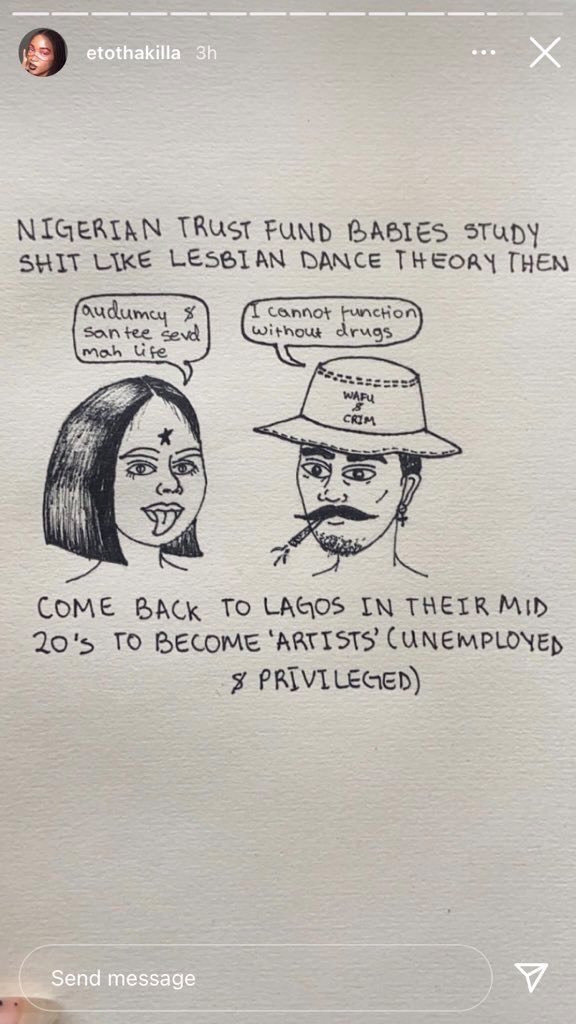 etothakilla 3h
NIGERIAN TRUST FUND BABIES STUDY
SHIT LIKE LESBIAN DANCE THEORY THEN
audumcy &
santee sevd
mah life
I cannot function
without drugs
WAFU
&
CRIM
COME BACK TO LAGOS IN THEIR MID
20'S TO BECOME 'ARTISTS' (UNEMPLOYED
& PRIVILEGED)
Send message